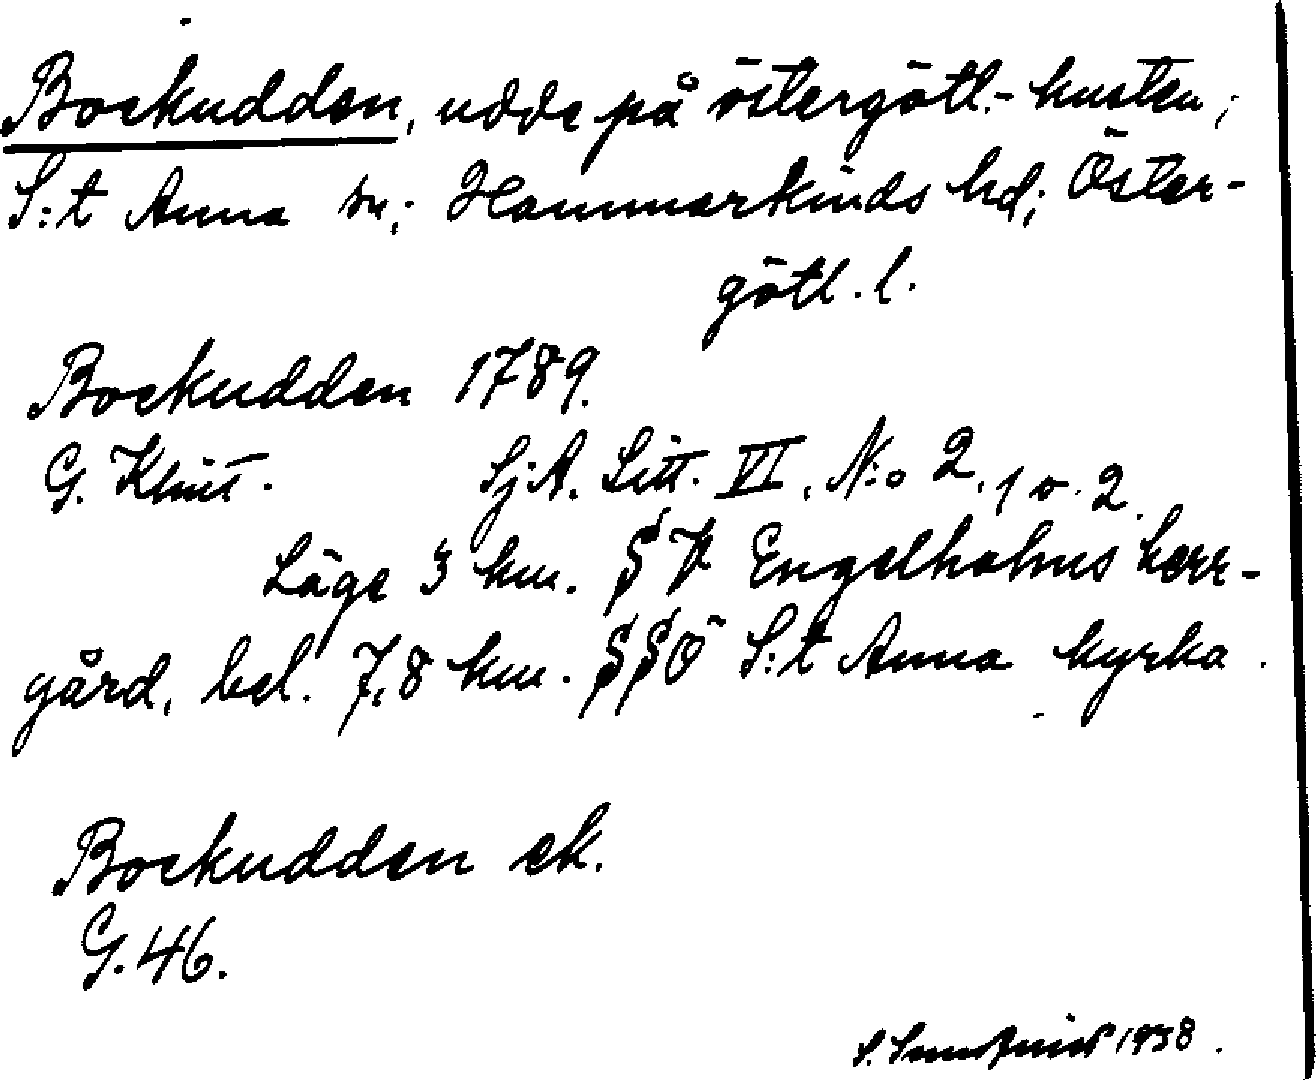 Bockudden, udde på östergötl.-kusten;
S:t Anna sn; Hammarkinds hd; Öster-
götl. l.
Bockudden 1789.
G. Klint. SjA. Litt. VI. No 2. 1 o. 2.
Läge 3 km. S V Engelholms herr-
gård, bel. 7,8 km. SSÖ S:t Anna kyrka.
Bockudden ek.
G. 46.
1938.